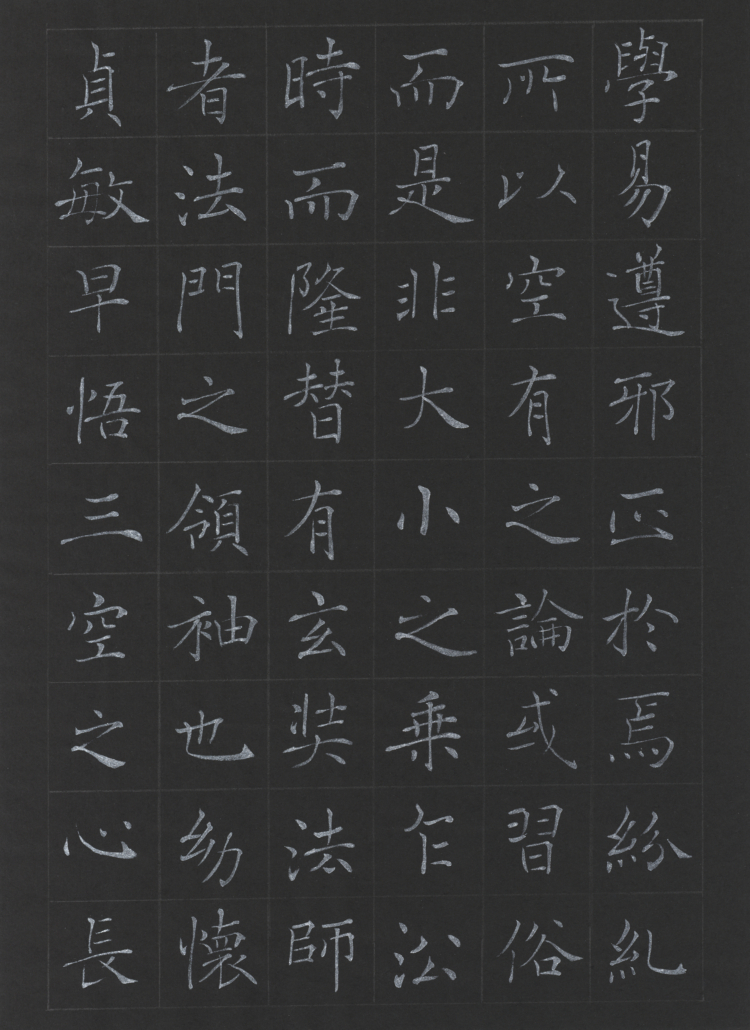 學易遵邪正於焉紛糺
所以空有之論或習俗
而是非大小之乘乍沿
時而隆替有玄奘法師
者法門之領袖也幼懷
貞敏早悟三空之心長